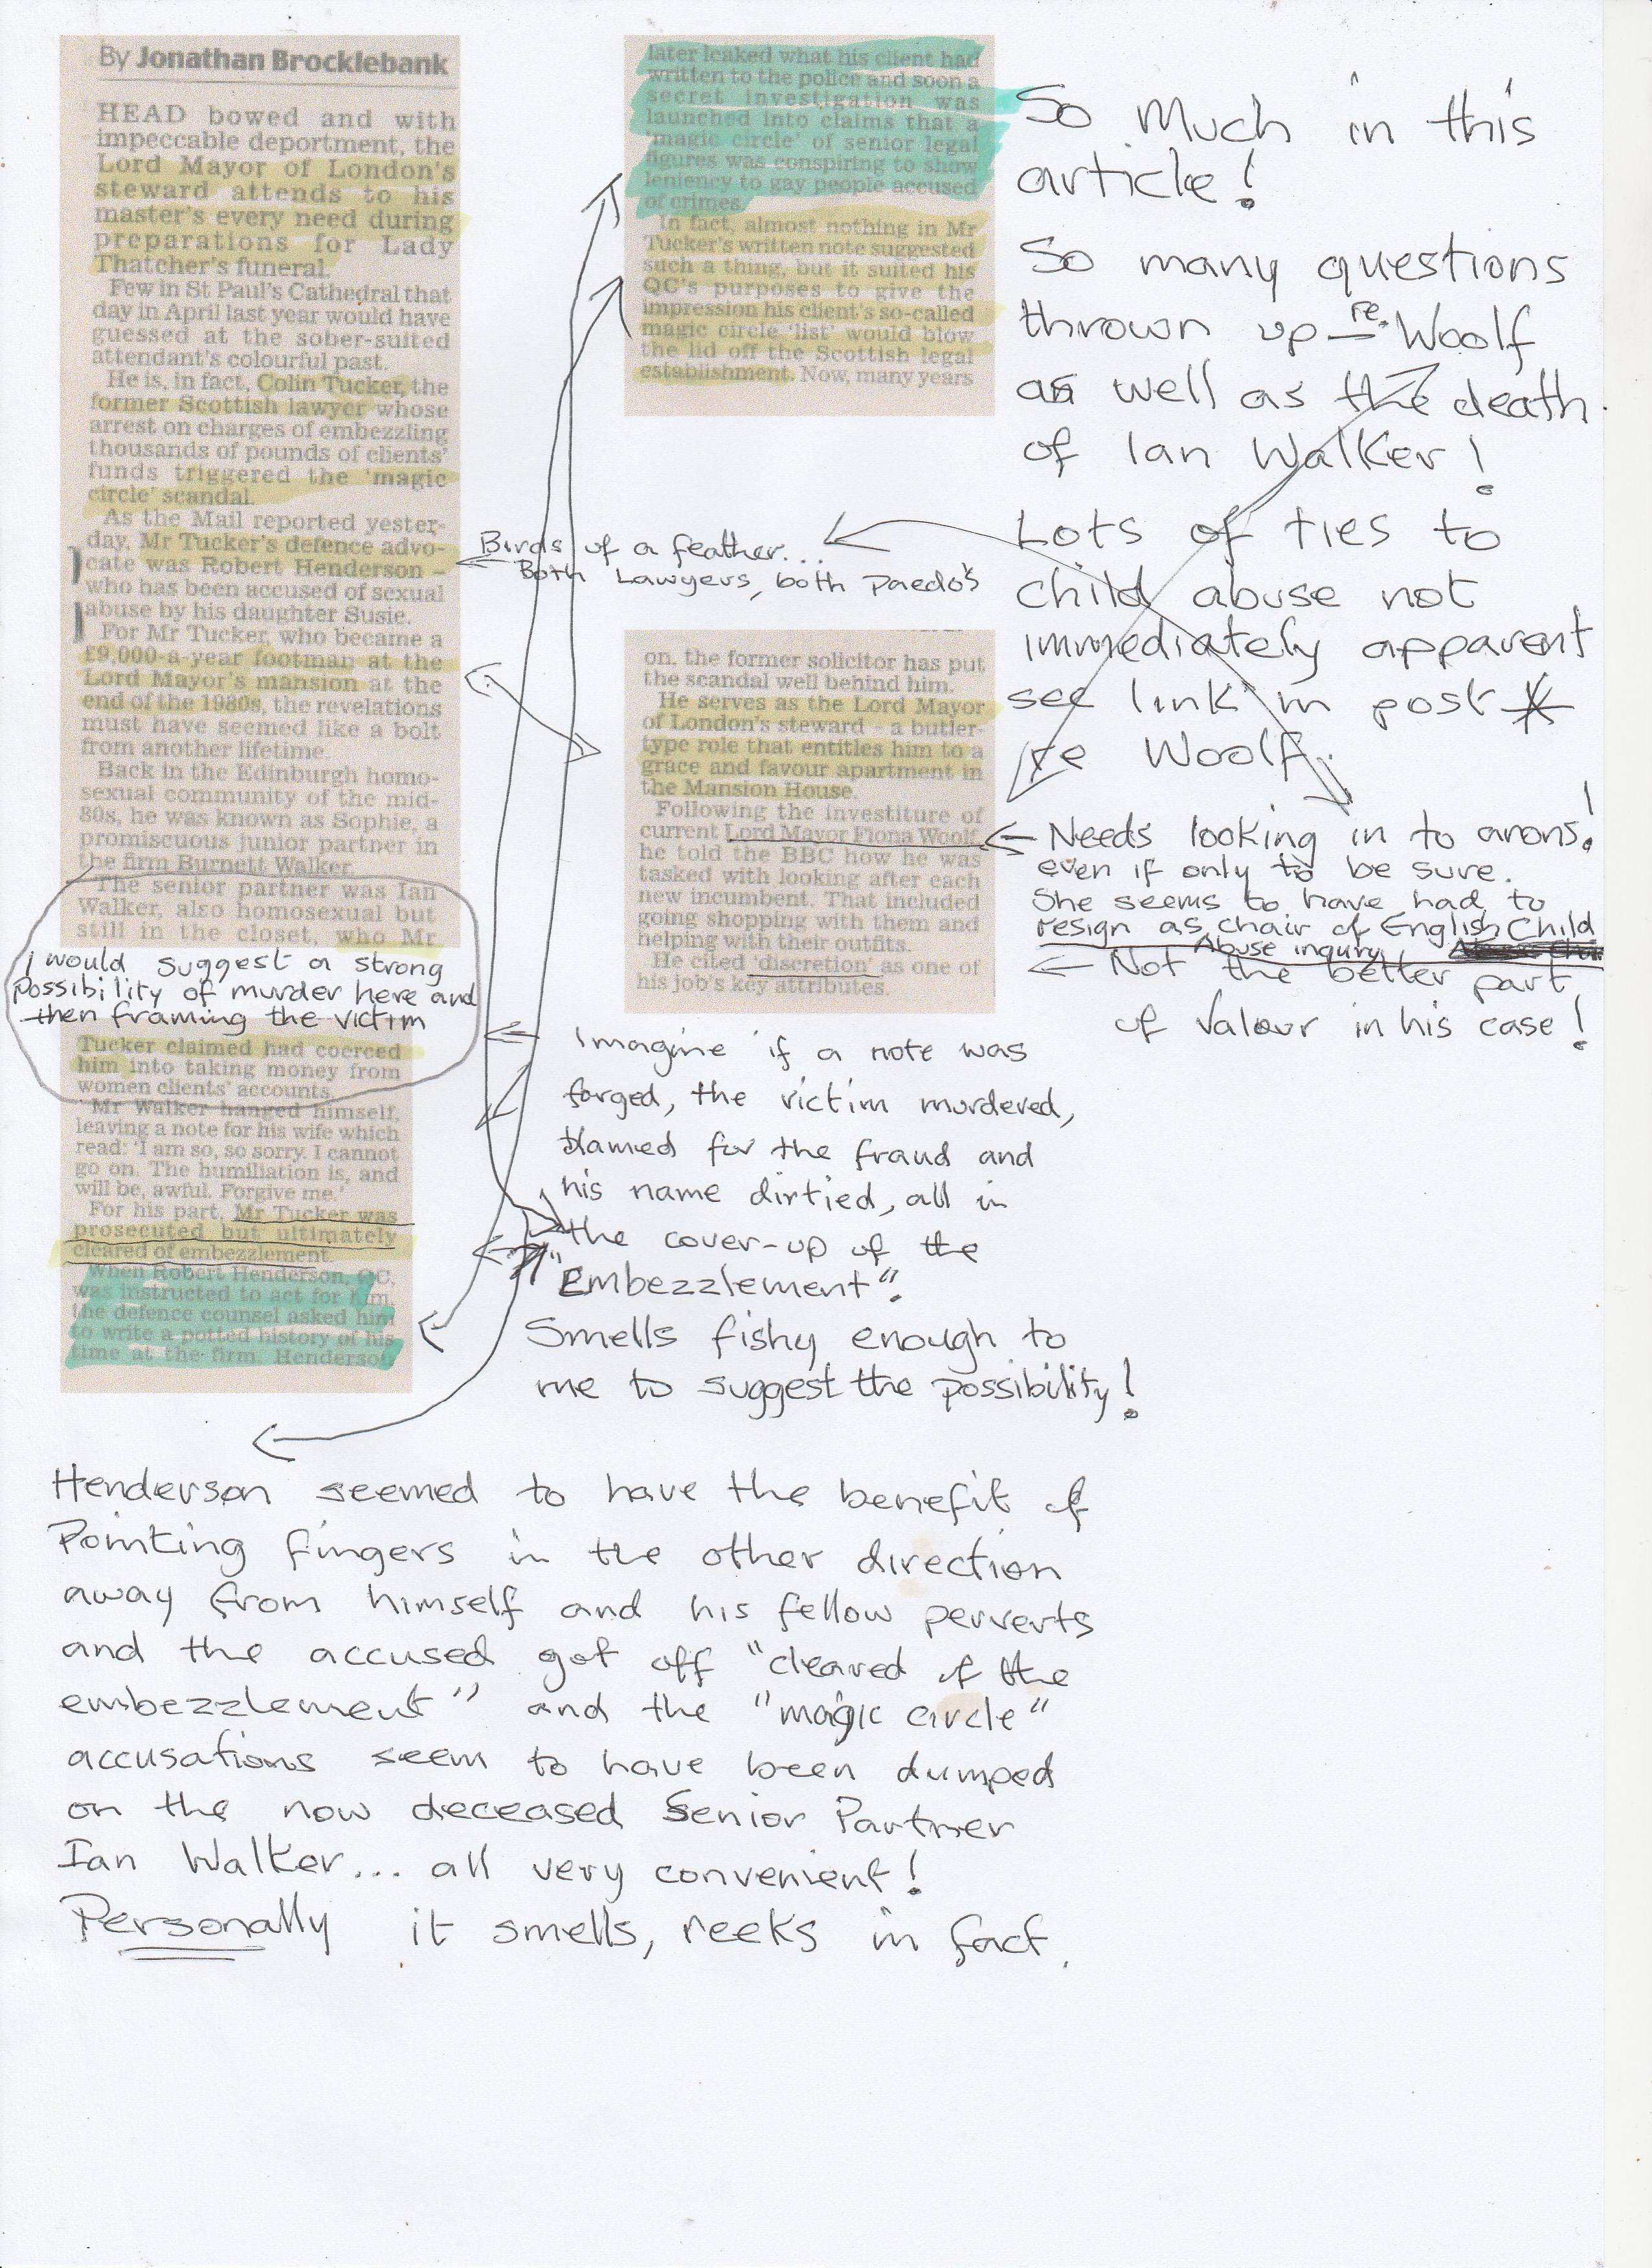 By Jonathan Brocklebank
HEAD bowed and with
impeccable deportment, the
Lord Mayor of London's
steward attends to his
master's every need during
preparations for Lady
Thatcher's funeral.
Few in St Paul's Cathedral that
day in April last year would have
guessed at the sober-suited
attendant's colourful past.
He is, in fact, Colin Tucker, the
former Scottish lawyer whose
arrest on charges of embezzling
thousands of pounds of clients'
funds triggered the 'magic
circle' scandal.
As the Mail reported yester-
day, Mr Tucker's defence advo-
cate was Robert Henderson –
who has been accused of sexual
abuse by his daughter Susie.
For Mr Tucker, who became a
£9,000-a-year footman at the
Lord Mayor's mansion at the
end of the 1980s, the revelations
must have seemed like a bolt
from another lifetime.
Back in the Edinburgh homo-
sexual community of the mid-
80s, he was known as Sophie, a
promiscuous junior partner in
the firm Burnett Walker.
The senior partner was Ian
Walker, also homosexual but
still in the closet, who Mr
I would suggest a strong
possibility of murder here and
then framing the victim
Tucker claimed had coerced
him into taking money from
women clients' accounts.
Mr Walker hanged himself,
leaving a note for his wife which
read: 'I am so, so sorry. I cannot
go on. The humiliation is, and
will be, awful. Forgive me.'
For his part, Mr Tucker was
prosecuted but ultimately
cleared of embezzlement.
When Robert Henderson, QC,
was instructed to act for him,
the defence counsel asked him
to write a potted history of his
time at the firm. Henderson
later leaked what his client had
written to the police and soon a
secret investigation was
launched into claims that a
'magic circle' of senior legal
figures was conspiring to show
leniency to gay people accused
of crimes.
In fact, almost nothing in Mr
Tucker's written note suggested
such a thing, but it suited his
QC's purposes to give the
impression his client's so-called
magic circle 'list' would blow
the lid off the Scottish legal
establishment. Now, many years
Birds of a feather...
Both Lawyers, both Paedo's
on, the former solicitor has put
the scandal well behind him.
He serves as the Lord Mayor
of London's steward – a butler-
type role that entitles him to a
grace and favour apartment in
the Mansion House.
Following the investiture of
current Lord Mayor Fiona Woolf,
he told the BBC how he was
tasked with looking after each
new incumbent. That included
going shopping with them and
helping with their outfits.
He cited 'discretion' as one of
his job's key attributes.
Imagine if a note was
forged, the victim murdered,
blamed for the fraud and
his name dirtied, all in
the cover-up of the
"Embezzlement".
Smells fishy enough to
me to suggest the possibility!
So Much in this
article!
So many questions
thrown up – re. Woolf
as well as the death
of Ian Walker!
Lots of ties to
child abuse not
immediately apparent
see link in post *
re Woolf.
Needs looking in to anons!
even if only to be sure.
She seems to have had to
resign as chair of English Child
Abuse inqury
Not the better part
of Valour in his case!
Henderson seemed to have the benefit of
Pointing fingers in the other direction
away from himself and his fellow perverts
and the accused got off "cleared of the
embezzlement" and the "magic circle"
accusations seem to have been dumped
on the now deceased Senior Partner
Ian Walker... all very convenient!
Personally it smells, reeks in fact.